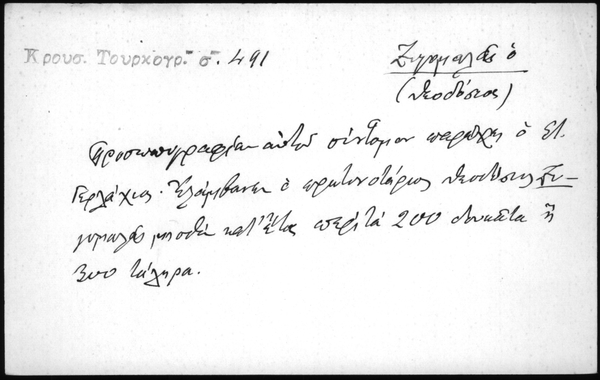 Κρους. Τουρκογρ. σ. 491
Ζυγομαλᾶς ὁ
(Θεοδόσιος)
Προσωπογραφίαν αὐτοῦ σύντομον παρέχει ὁ Στ.
Γερλάχιος. Ἐλάμβανεν ὁ πρωτονοτάριος Θεοδόσιος Ζυ-
γομαλᾶς μισθὸν κατ' ἔτος περὶ τὰ 200 δουκάτα ἢ
300 τάληρα.